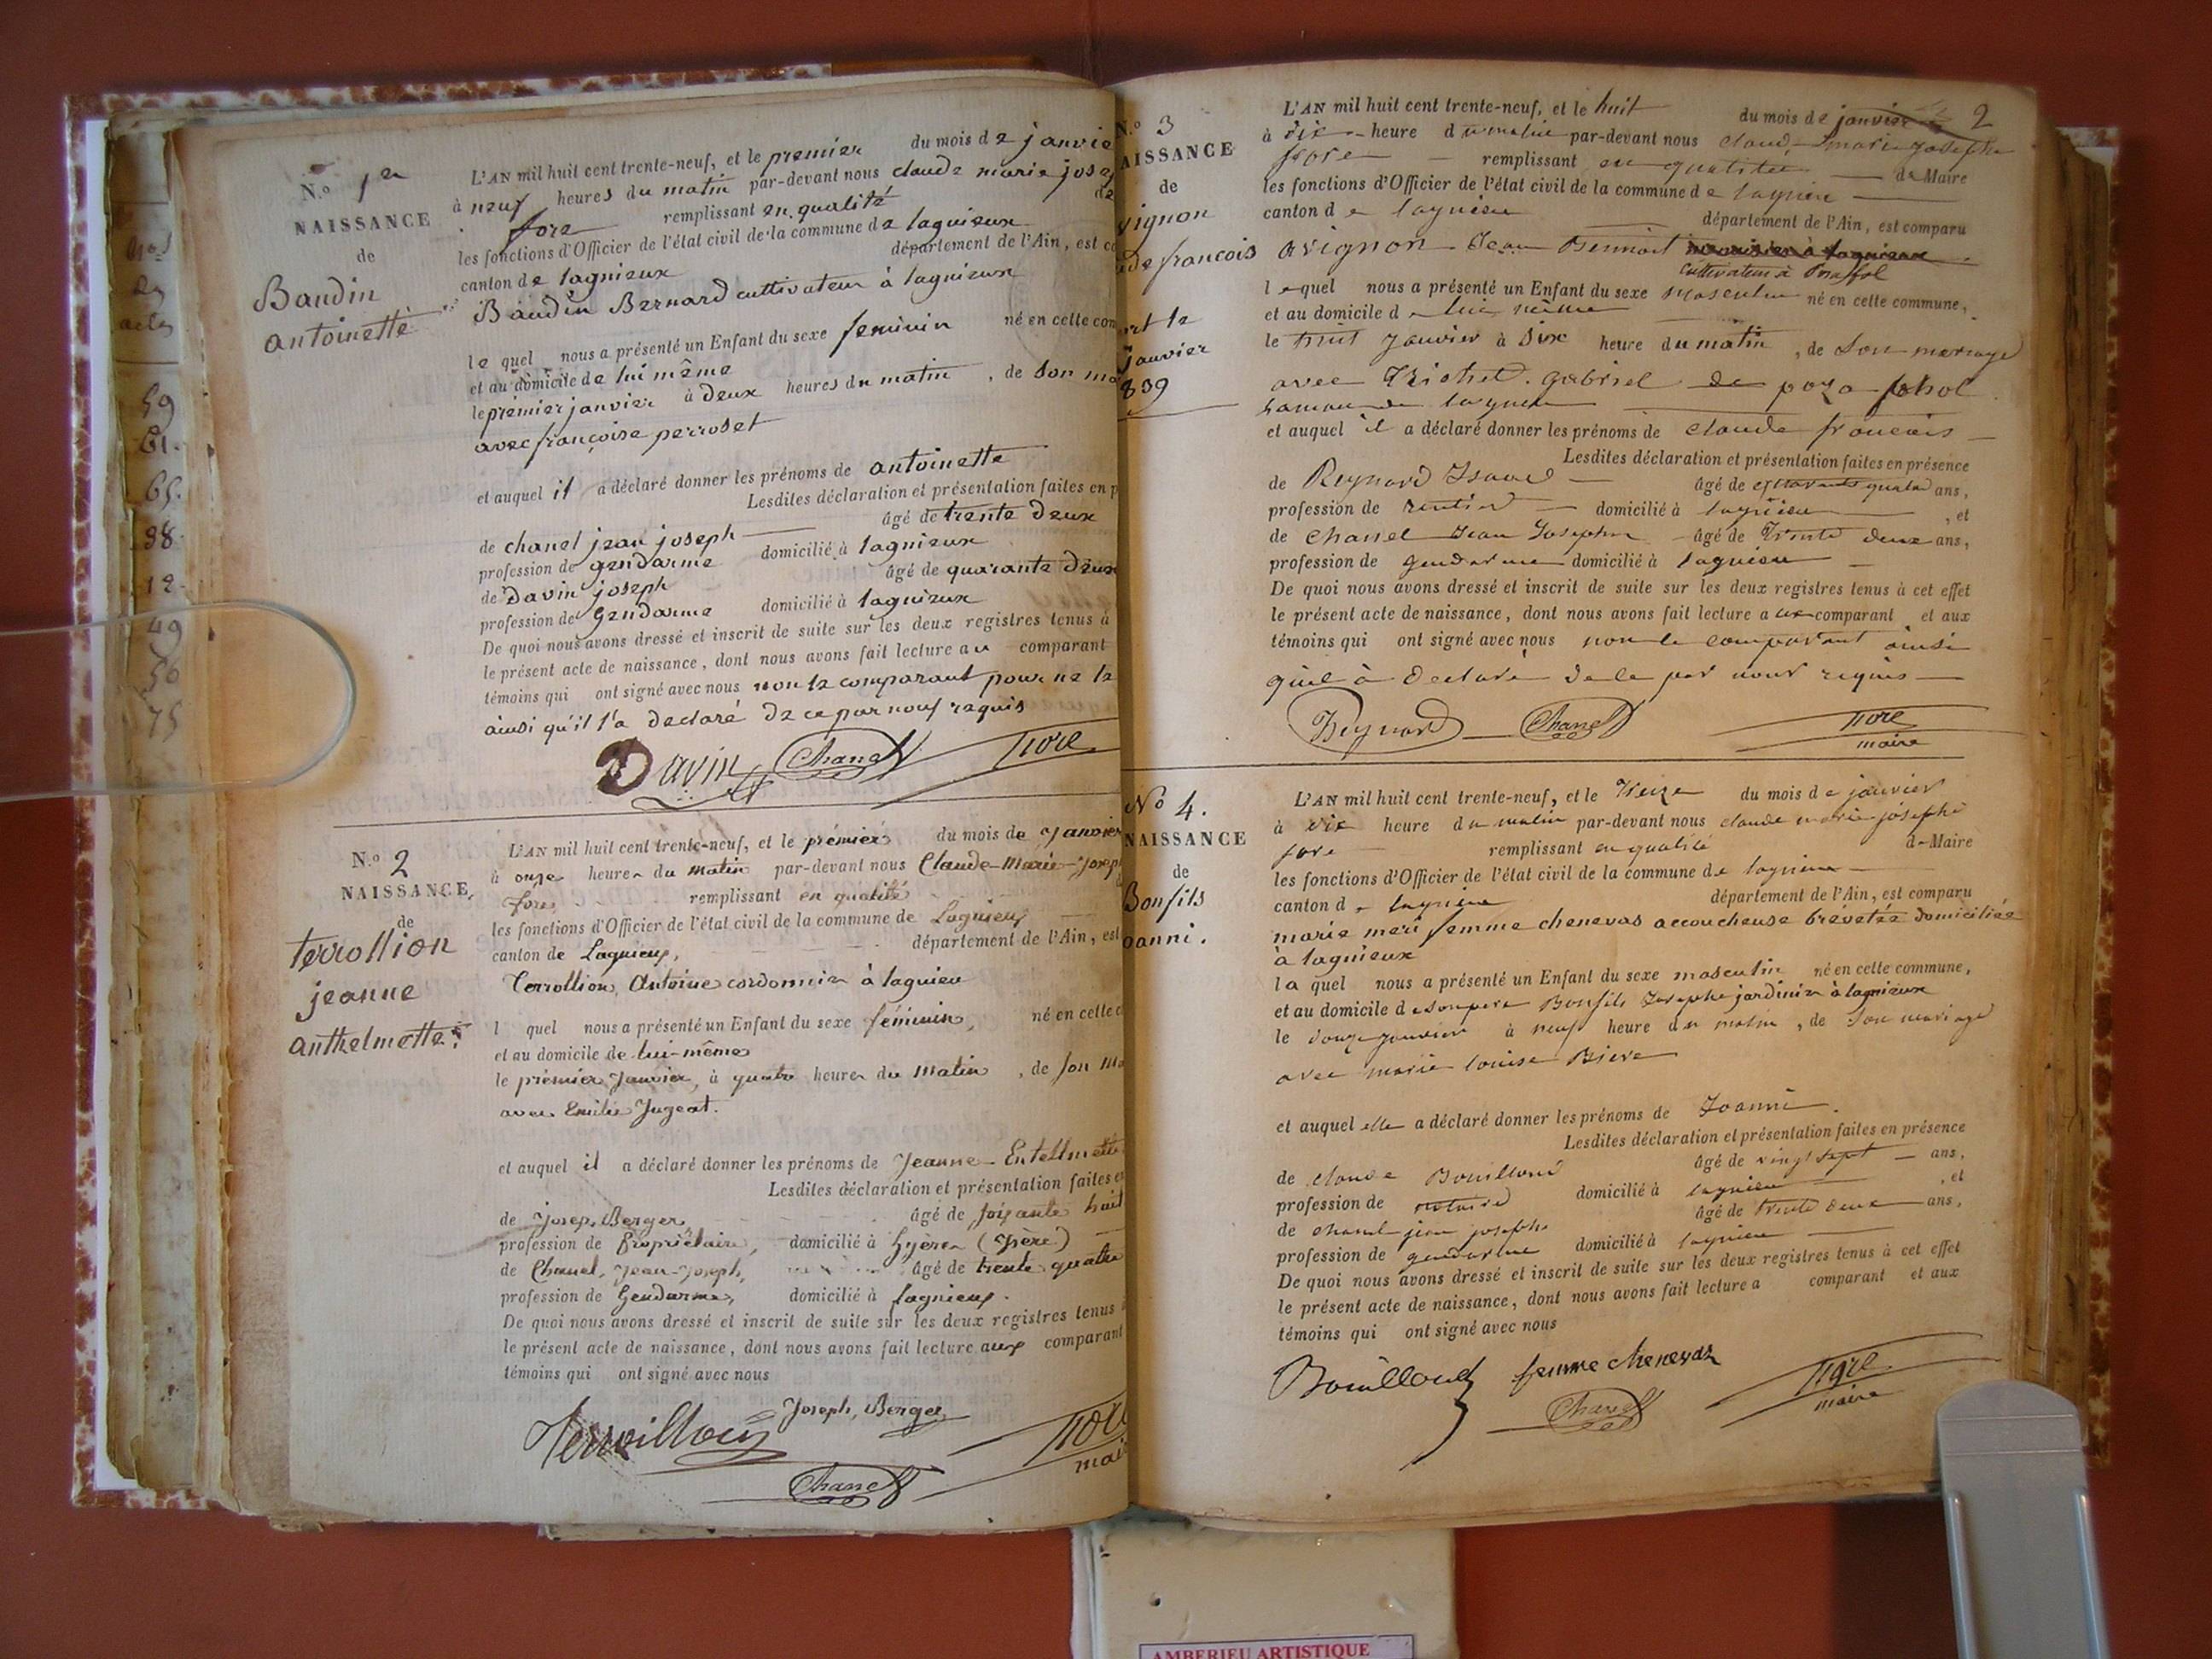 N.º 1er
NAISSANCE
de
Baudin
antoinette
L'AN mil huit cent trente-neuf, et le premier du mois de janvie
à neuf heures du matin par-devant nous claude marie jose
fore remplissant en qualité de
les fonctions d'Officier de l'état civil de la commune de lagnieux
canton de lagnieux département de l'Ain, est co
Baudin Bernard cultivateur à lagnieux
le quel nous a présenté un Enfant du sexe feminin né en cette com
et au domicile de lui même
le premier janvier à deux heures du matin, de son ma
avec françoise perroset
et auquel il a déclaré donner les prénoms de antoinette
Lesdites déclaration et présentation faites en p
de chanel jean joseph âgé de trente deux
profession de gendarme domicilié à lagnieux
de Davin joseph âgé de quarante deux
profession de Gendarme domicilié à lagnieux
De quoi nous avons dressé et inscrit de suite sur les deux registres tenus à
le présent acte de naissance, dont nous avons fait lecture au comparant
témoins qui ont signé avec nous non le comparant pour ne le
ainsi qu'il l'a declaré de ce par nous requis
Davin Chanel fore
N.º 2
NAISSANCE
de
terrollion
jeanne
anthelmette
L'AN mil huit cent trente-neuf, et le prémier du mois de Janvier
à onze heures du matin par-devant nous Claude-Marie-Josep
fore remplissant en qualité
les fonctions d'Officier de l'état civil de la commune de Lagnieux
canton de Lagnieux, département de l'Ain, est
Terrollion Antoine cordonnier à lagnieu
l quel nous a présenté un Enfant du sexe féminin, né en cette c
et au domicile de lui-même
le prémier Janvier, à quatre heures du matin, de son Ma
avec Emilie Jugeat.
et auquel il a déclaré donner les prénoms de Jeanne-Entellmette
Lesdites déclaration et présentation faites en
de Josep Berger âgé de soixante huit
profession de Propriétaire, domicilié à hyères (Isère)
de Chanel, Jean-Joseph, âgé de trente quatre
profession de Gendarme, domicilié à Lagnieux.
De quoi nous avons dressé et inscrit de suite sur les deux registres tenus
le présent acte de naissance, dont nous avons fait lecture aux comparant
témoins qui ont signé avec nous
Joseph, Berger
Chanel fore
mai
N.º 3
AISSANCE
de
vignon
de francois
rt le
janvier
839
2
L'AN mil huit cent trente-neuf, et le huit du mois de janvier
à dix heure du matin par-devant nous claude marie josephe
fore remplissant en qualitée de Maire
les fonctions d'Officier de l'état civil de la commune de lagnieu
canton de lagnieu département de l'Ain, est comparu
avignon Jean Bennoit
cultivateur à
lequel nous a présenté un Enfant du sexe masculin né en cette commune,
et au domicile de lui même
le huit janvier à six heure du matin, de son mariage
avec gabriel de
hamau de lagnieu
et auquel il a déclaré donner les prénoms de claude francois
Lesdites déclaration et présentation faites en présence
de Reynard Isaac âgé de quatre ans,
profession de rentier domicilié à lagnieu, et
de Chanel Jean Josephe âgé de trente deux ans,
profession de gendarme domicilié à lagnieu
De quoi nous avons dressé et inscrit de suite sur les deux registres tenus à cet effet
le présent acte de naissance, dont nous avons fait lecture aux comparant et aux
témoins qui ont signé avec nous non le comparant ainsi
quil à declaré de le par nour requis
Reynard Chanel fore
maire
Nº 4.
NAISSANCE
de
Bonfils
oanni.
L'AN mil huit cent trente-neuf, et le treize du mois de janvier
à dix heure du matin par-devant nous claude marie josephe
fore remplissant en qualité de Maire
les fonctions d'Officier de l'état civil de la commune de lagnieu
canton de lagnieu département de l'Ain, est comparu
marie meri femme chenevas accoucheuse brevetée domiciliée
à lagnieux
la quel nous a présenté un Enfant du sexe masculin né en cette commune,
et au domicile de son pere Bonfils Josephe jardinier à lagnieux
le douze janvier à neuf heure du matin, de son mariage
avec marie louise Biere
et auquel elle a déclaré donner les prénoms de Joanni.
Lesdites déclaration et présentation faites en présence
de claude Bouilloud âgé de vingt sept ans,
profession de notaire domicilié à lagnieu, et
de chanel jean josephe âgé de trente deux ans,
profession de gendarme domicilié à lagnieu
De quoi nous avons dressé et inscrit de suite sur les deux registres tenus à cet effet
le présent acte de naissance, dont nous avons fait lecture a comparant et aux
témoins qui ont signé avec nous
Bouilloud femme chenevas fore
Chanel maire
59
61.
65.
88
12
49
56
75
AMBERIEU ARTISTIQUE